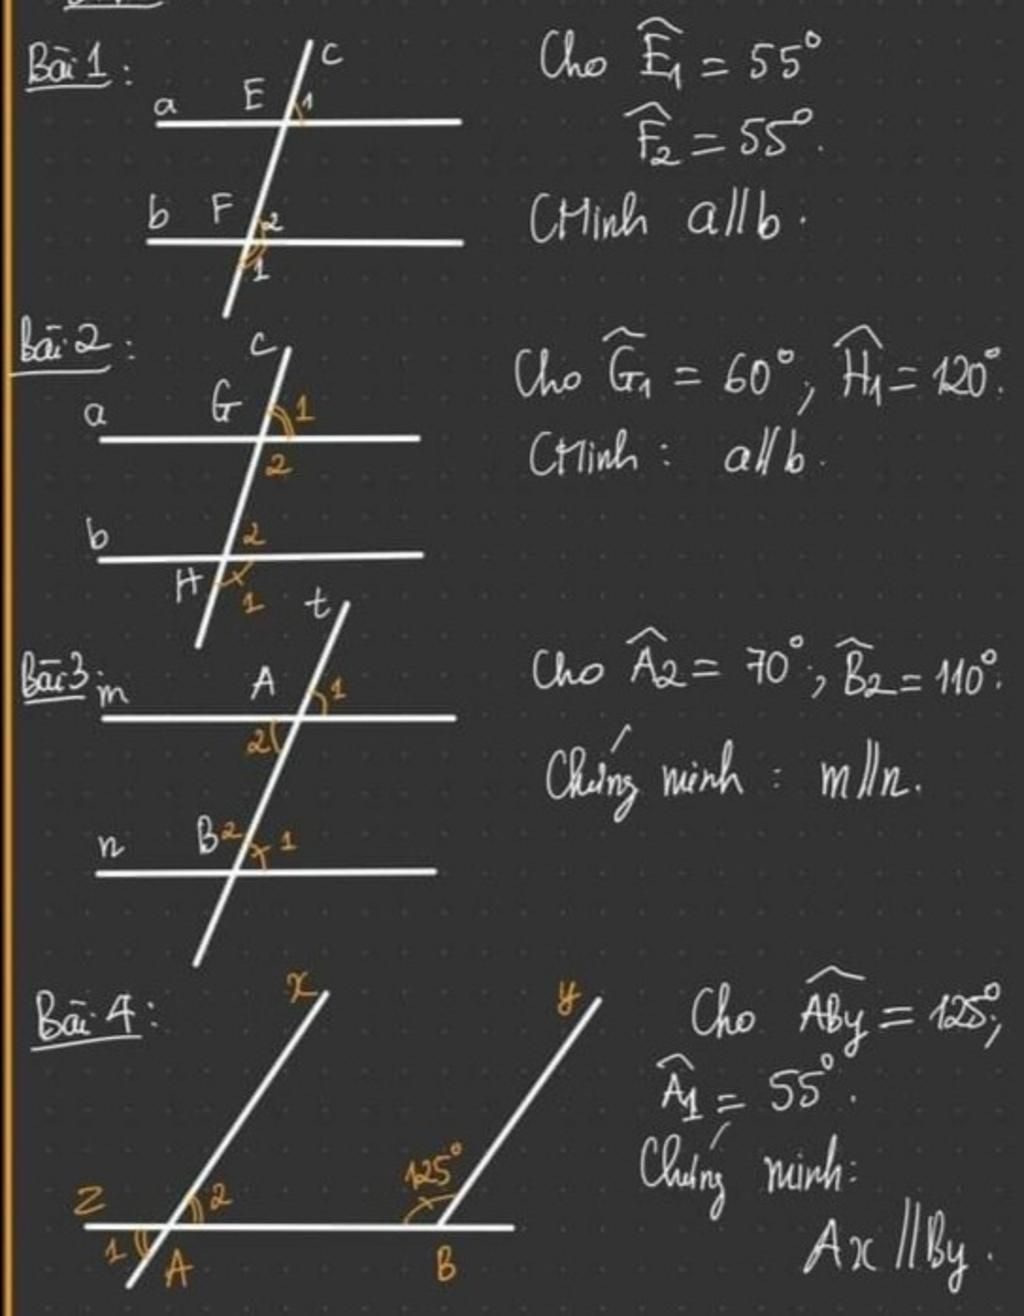 Bài 1:
c
a E 1
b F 2
1
Cho Ê1 = 55°
F̂2 = 55°.
CMinh a//b.
Bài 2:
c
a G 1
2
b 2
H 1
Cho Ĝ1 = 60°, Ĥ1 = 120°.
CMinh: a//b.
Bài 3:
t
m A 1
2
n B 2 1
Cho Â2 = 70°; B̂2 = 110°.
Chứng minh: m//n.
Bài 4:
x y
z 2 125°
1 A B
Cho ABy = 125°;
Â1 = 55°.
Chứng minh:
Ax // By.